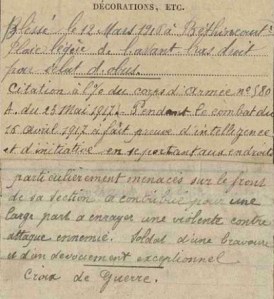 DÉCORATIONS, ETC.
Blessé le 12 Mars 1916 à Béthincourt
Plaie légère de l'avant bras droit
par éclat d'obus.
Citation à l'o. du corps d'Armée nº 580
A. du 23 Mai 1917. - Pendant le combat du
15 avril 1917 a fait preuve d'intelligence
et d'initiative en se portant aux endroits
particulièrement menacés sur le front
de sa section a contribué pour une
large part à enrayer une violente contre
attaque ennemie. Soldat d'une bravoure
et d'un dévouement exceptionnel
Croix de Guerre.